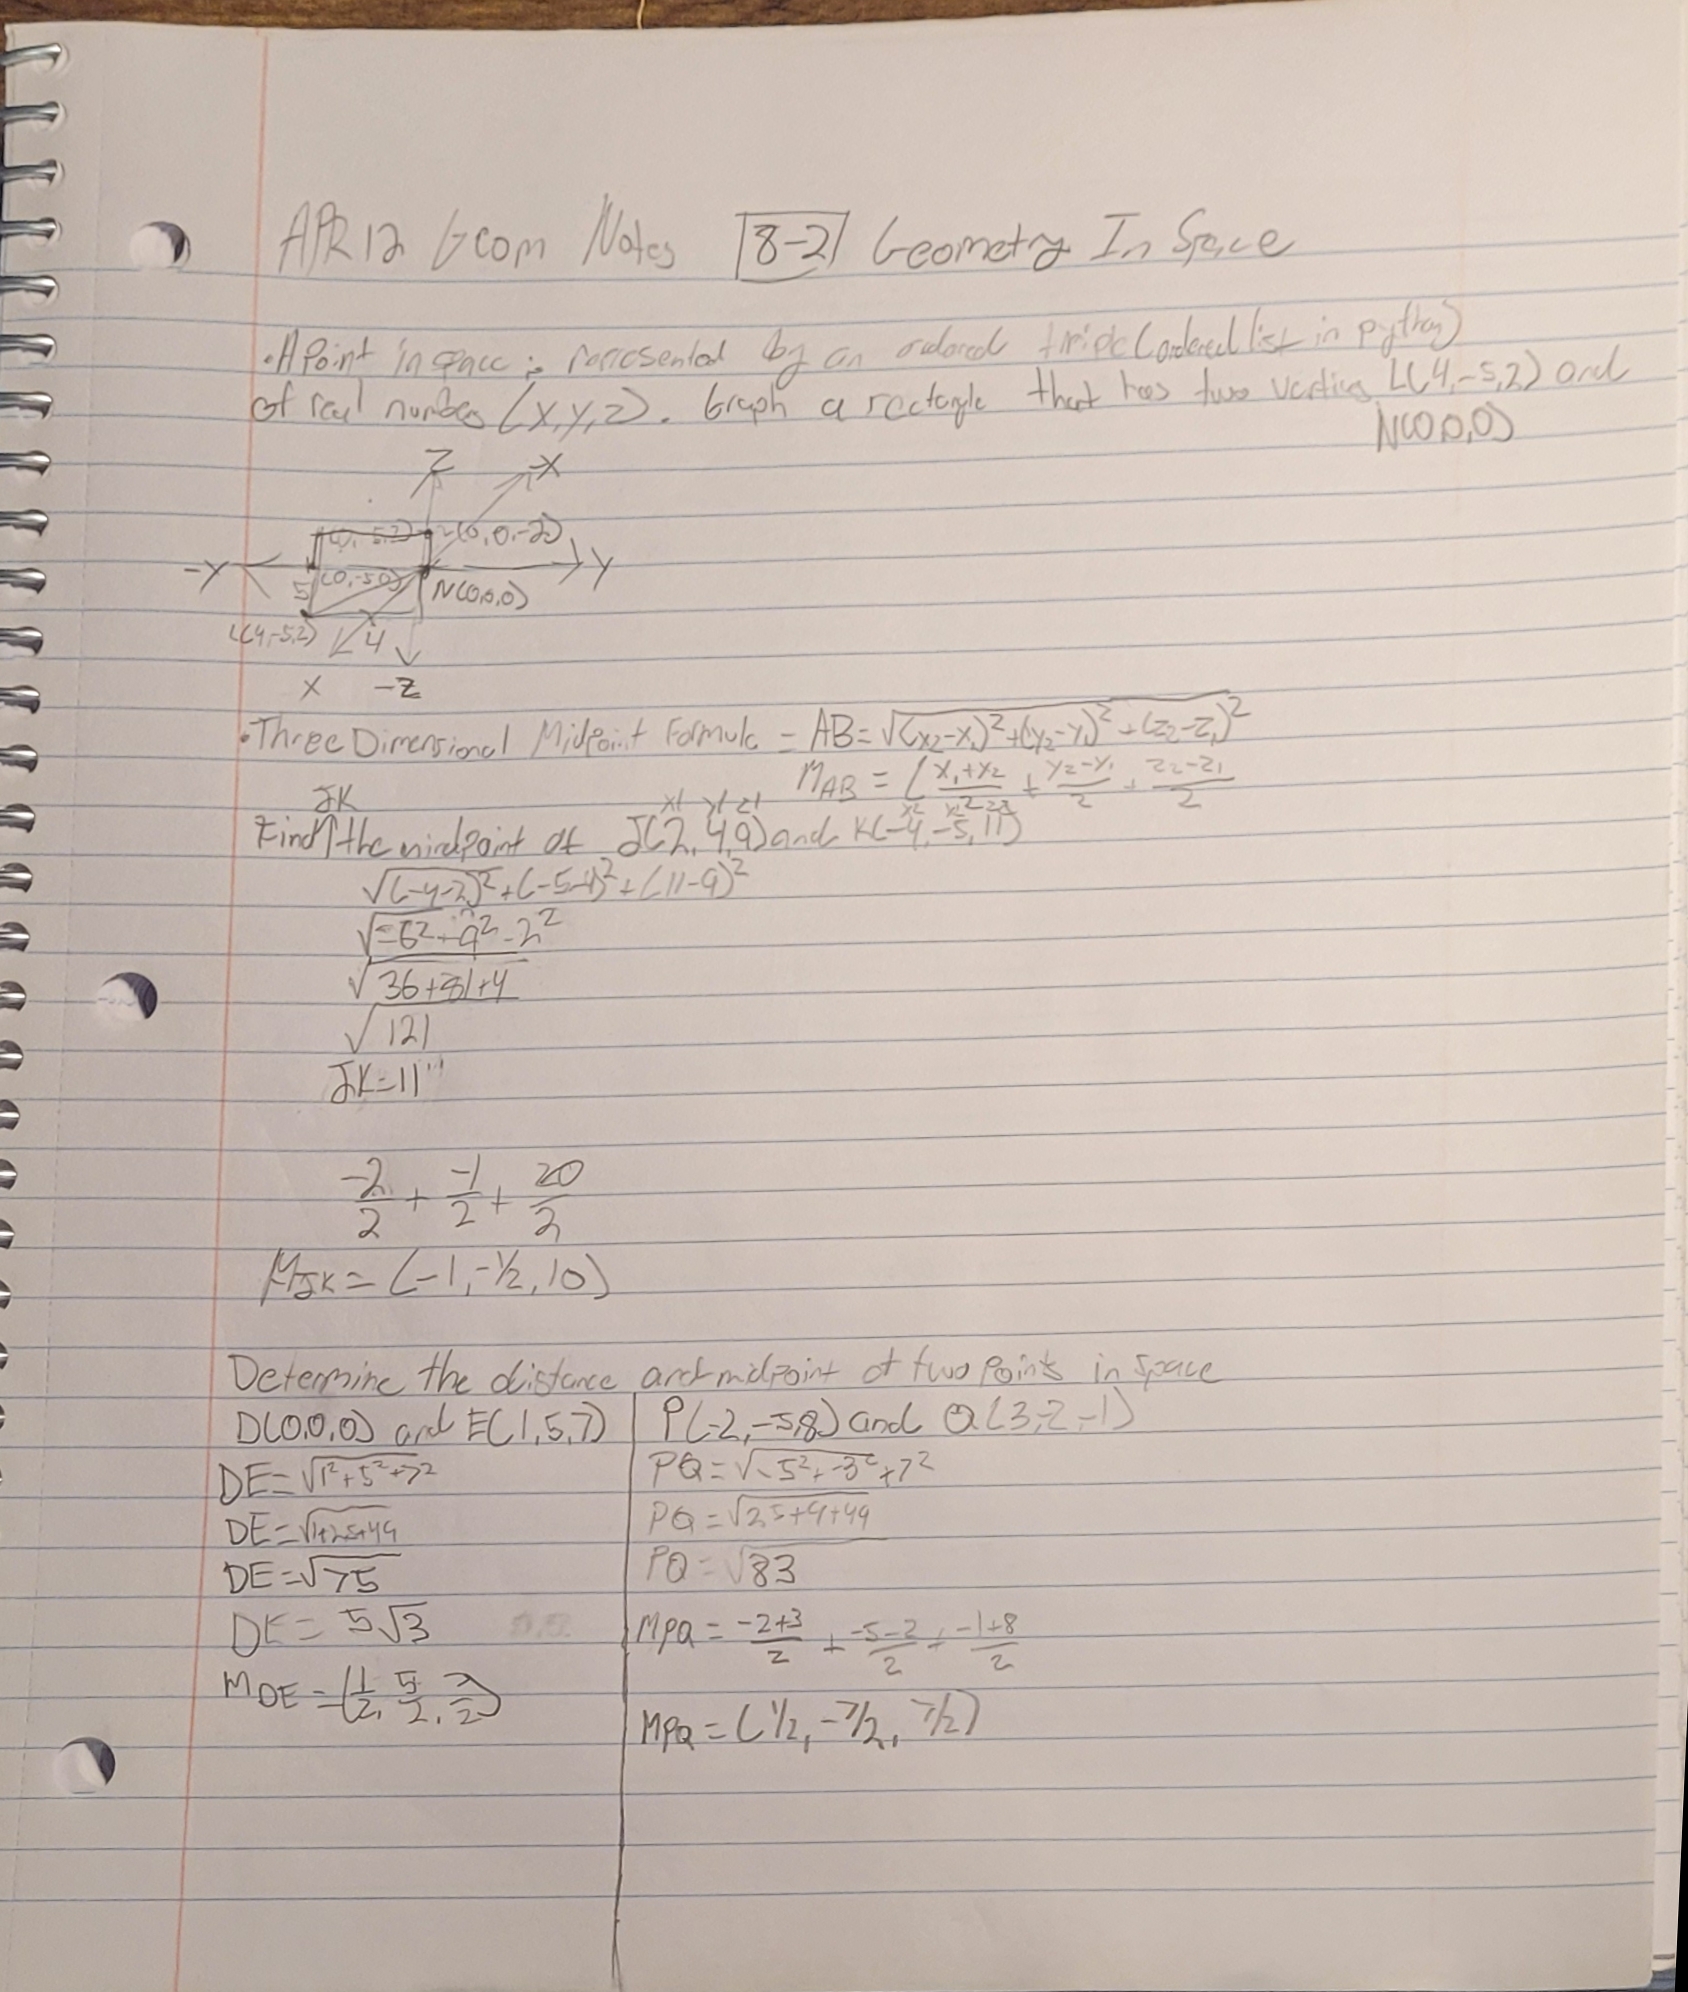 APR 12 Geom Notes 8-2 Geometry In Space
• A Point in space is represented by an ordered triple (ordered list in python)
of real numbers (x, y, z). Graph a rectangle that has two vertices L(4,-5,2) and
N(0,0,0)
Z -X
(0,-5,2) 2(0,0,-2)
-Y Y
5 (0,-5,0) N(0,0,0)
L(4,-5,2) 4
X -Z
• Three Dimensional Midpoint Formula = AB=√(x2-x1)²+(y2-y1)²+(z2-z1)²
MAB = (x1+x2/2 + y2-y1/2 + z2-z1/2
JK x1 y1 z1 x2 y2 z2
Find the midpoint of J(2,4,9) and K(-4,-5,11)
√(-4-2)²+(-5-4)²+(11-9)²
√-6²+-9²-2²
√36+81+4
√121
JK=11
-2/2 + -1/2 + 20/2
MJK = (-1,-1/2,10)
Determine the distance and midpoint of two points in space
D(0,0,0) and E(1,5,7)
DE=√1²+5²+7²
DE=√1+25+49
DE=√75
DE= 5√3
MDE=(1/2, 5/2, 7/2)
P(-2,-5,8) and Q(3,-2,-1)
PQ=√-5²+-3²+7²
PQ=√25+9+49
PQ=√83
MPQ = -2+3/2 + -5-2/2 + -1+8/2
MPQ = (1/2, -7/2, 7/2)